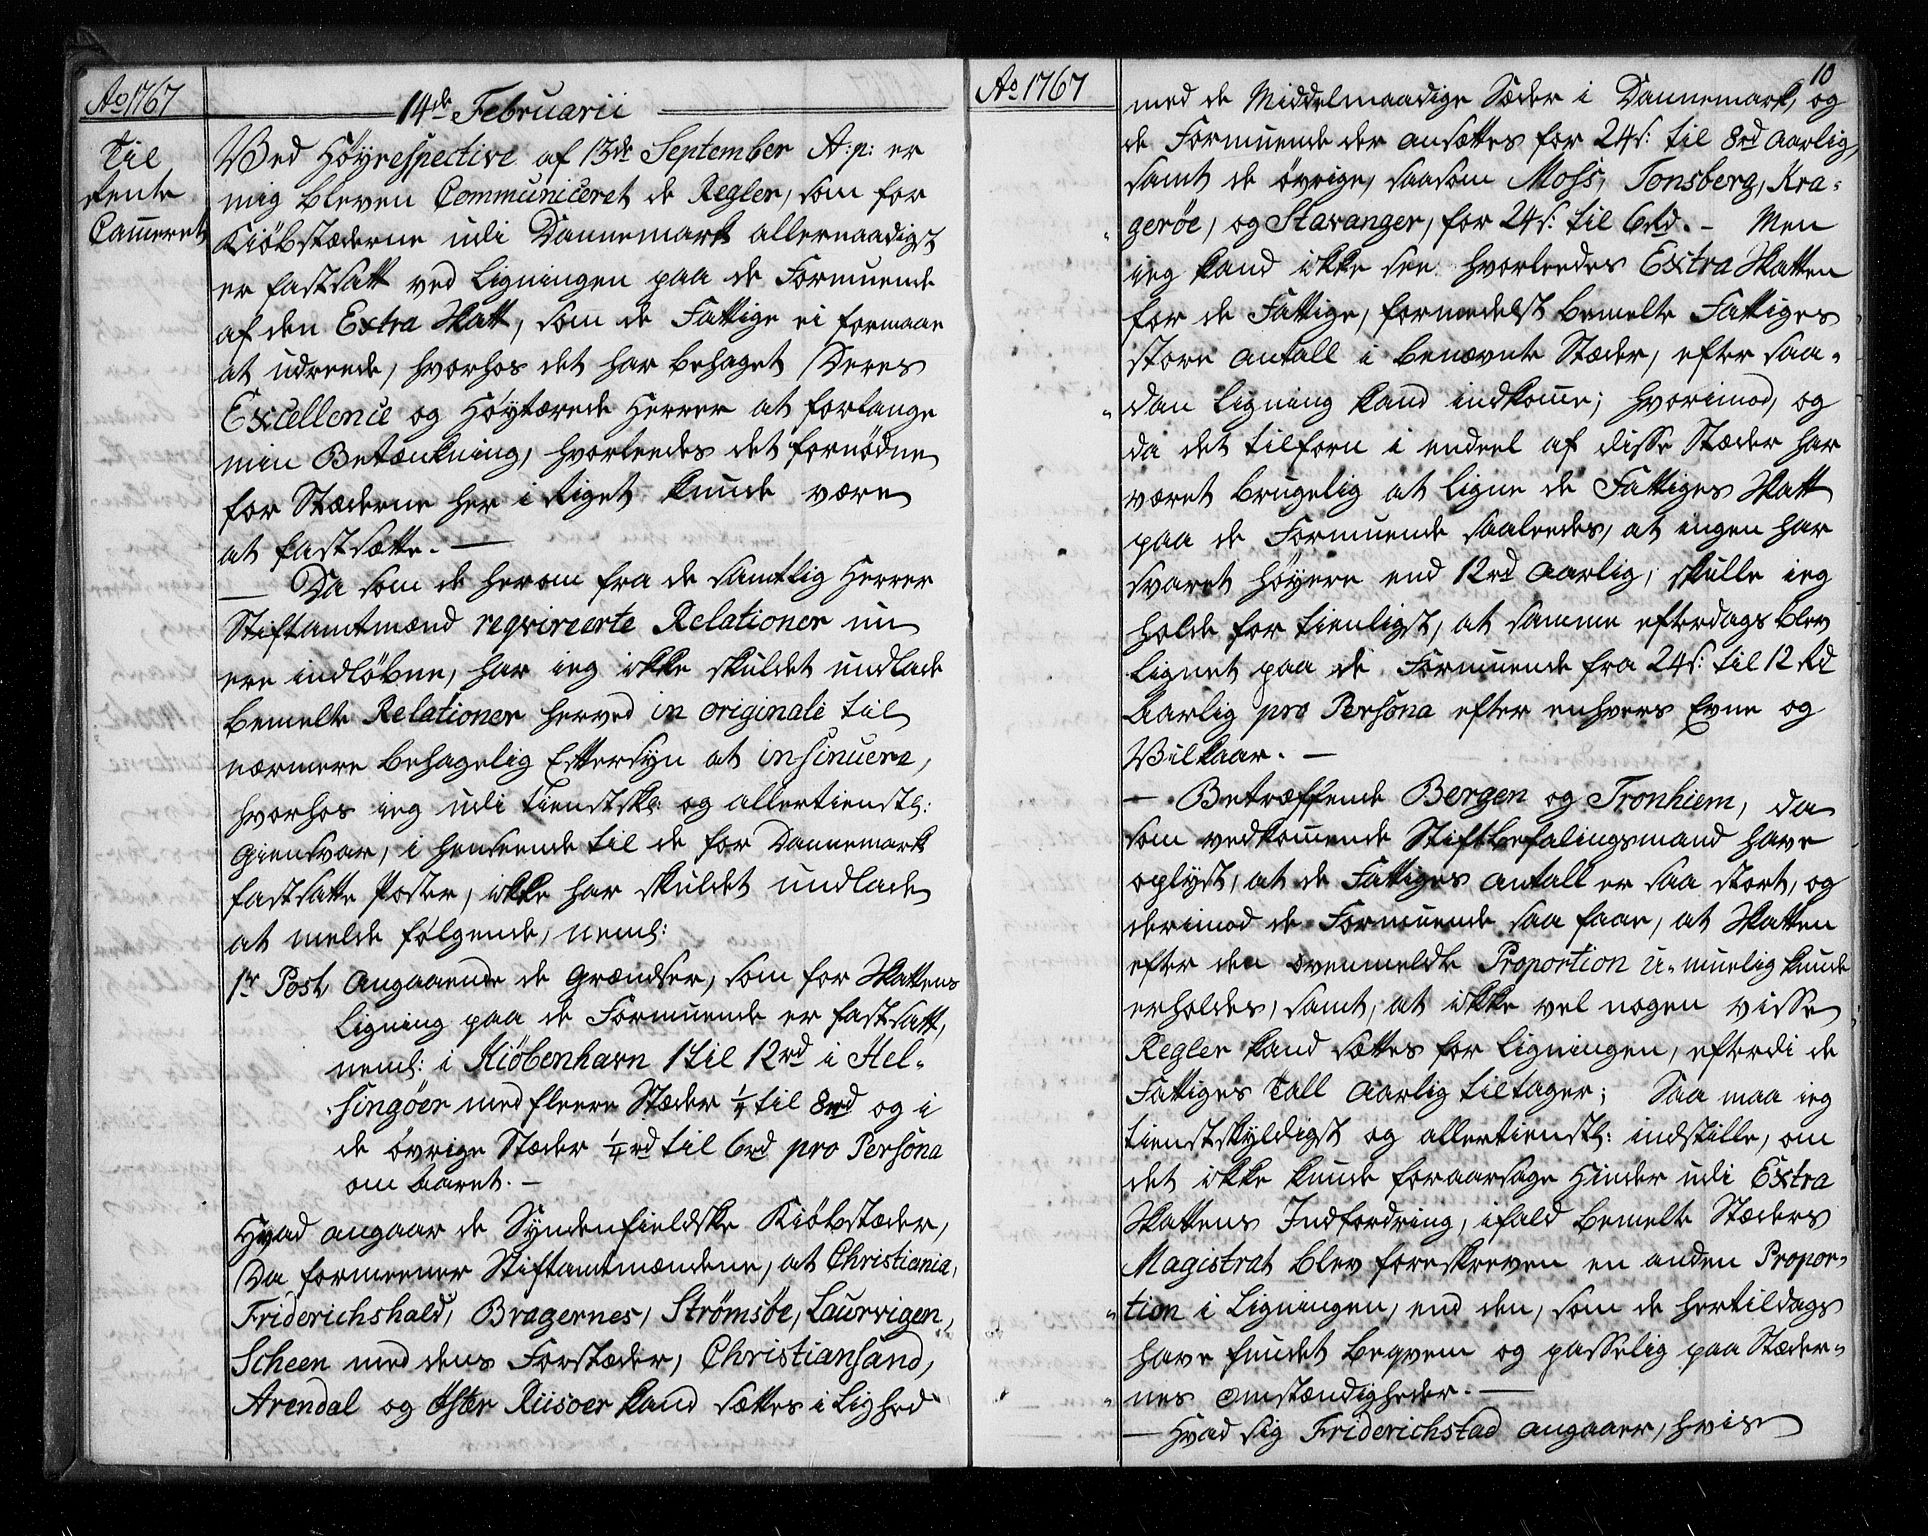 Ao 1767
14de Februarii
Til
Rente
Cam̅eret
Ved Høyrespective af 13de September A: p: er
mig bleven Communiceret de Regler, som for
Kiøbstæderne udi Dannemark allernaadigst
er fastsatt ved Ligningen paa de Formuende
af den Extra Skatt, som de Fattige ei formaae
at udreede, hvorhos det har behaget Deres
Excellence og Høytærede Herrer at forlange
min Betænkning, hvorleedes det fornødne
for Stæderne her i Riget kunde være
at fastsætte. —
— Da som de herom fra de samtlig Herrer
Stiftamtmænd reqvireerte Relationer nu
ere indløbne, har ieg ikke skuldet undlade
bemelte Relationer herved in originali til
nærmere behagelig Eftersyn at insinuere,
hvorhos ieg udi tienstskl: og allertienstl:
Giensvar, i henseende til de for Dannemark
fastsatte Poster, ikke har skuldet undlade
at melde følgende, neml:
1r Post, Angaaende de Grændser, som for Skattens
Ligning paa de Formuende er fastsatt,
neml: i Kiøbenhavn 1 til 12rd i Hel-
singøer med fleere Stæder ¼ til 8rd og i
de øvrige Stæder ¼rd til 6rd pro Persona
om Aaret. —
Hvad angaar de Syndenfieldske Kiøbstæder,
Da formeener Stiftamtmændene, at Christiania,
Friderichshald, Bragernes, Strømsøe, Laurvigen,
Scheen med dens Forstæder, Christiansand,
Arendal og Øster Riisoer kand sættes i Lighed
Ao 1767
10
med de Middelmaadige Stæder i Dannemark, og
de Formuende der ansættes for 24s: til 8rd aarlig,
samt de øvrige, saasom Moss, Tonsberg, Kra-
gerøe, og Stavanger, for 24s: til 6rd. — Men
ieg kand ikke see hvorleedes Extra Skatten
for de Fattige, formedelst bemelte Fattiges
store antall i benævnte Stæder, efter saa-
dan Ligning kand indkom̅e; hvorimod, og
da det tilforn i endeel af disse Stæder har
været brugelig at ligne de Fattiges Skatt
paa de Formuende saaleedes, at ingen har
svaret høyere end 12rd aarlig, skulle ieg
holde for tienligst, at samme efterdags blev
Lignet paa de Formuende fra 24s: til 12 Rd
Aarlig pro Persona efter enhvers Evne og
Vilkaar. —
— Betræffende Bergen og Tronhiem, da
som vedkom̅ende Stiftbefalingsmænd have
oplyst, at de Fattiges antall er saa stort, og
derimod de Formuende saa faae, at Skatten
efter den ovenmeldte Proportion u-muelig kunde
erholdes, samt, at ikke vel nogen visse
Regler kand sættes for Ligningen, efterdi de
Fattiges Tall Aarlig tiltager; Saa maa ieg
tienstskyldigst og allertienstl: indstille, om
det ikke kunde foraarsage Hinder udi Extra
Skattens Indfordring, ifald bemelte Stæders
Magistrat blev foreskreven en anden Propor-
tion i Ligningen, end den, som de hertildags
have fundet beqvem og passelig paa Stæder-
nes omstændigheder. —
— Hvad sig Friderichstad angaaer, hvis